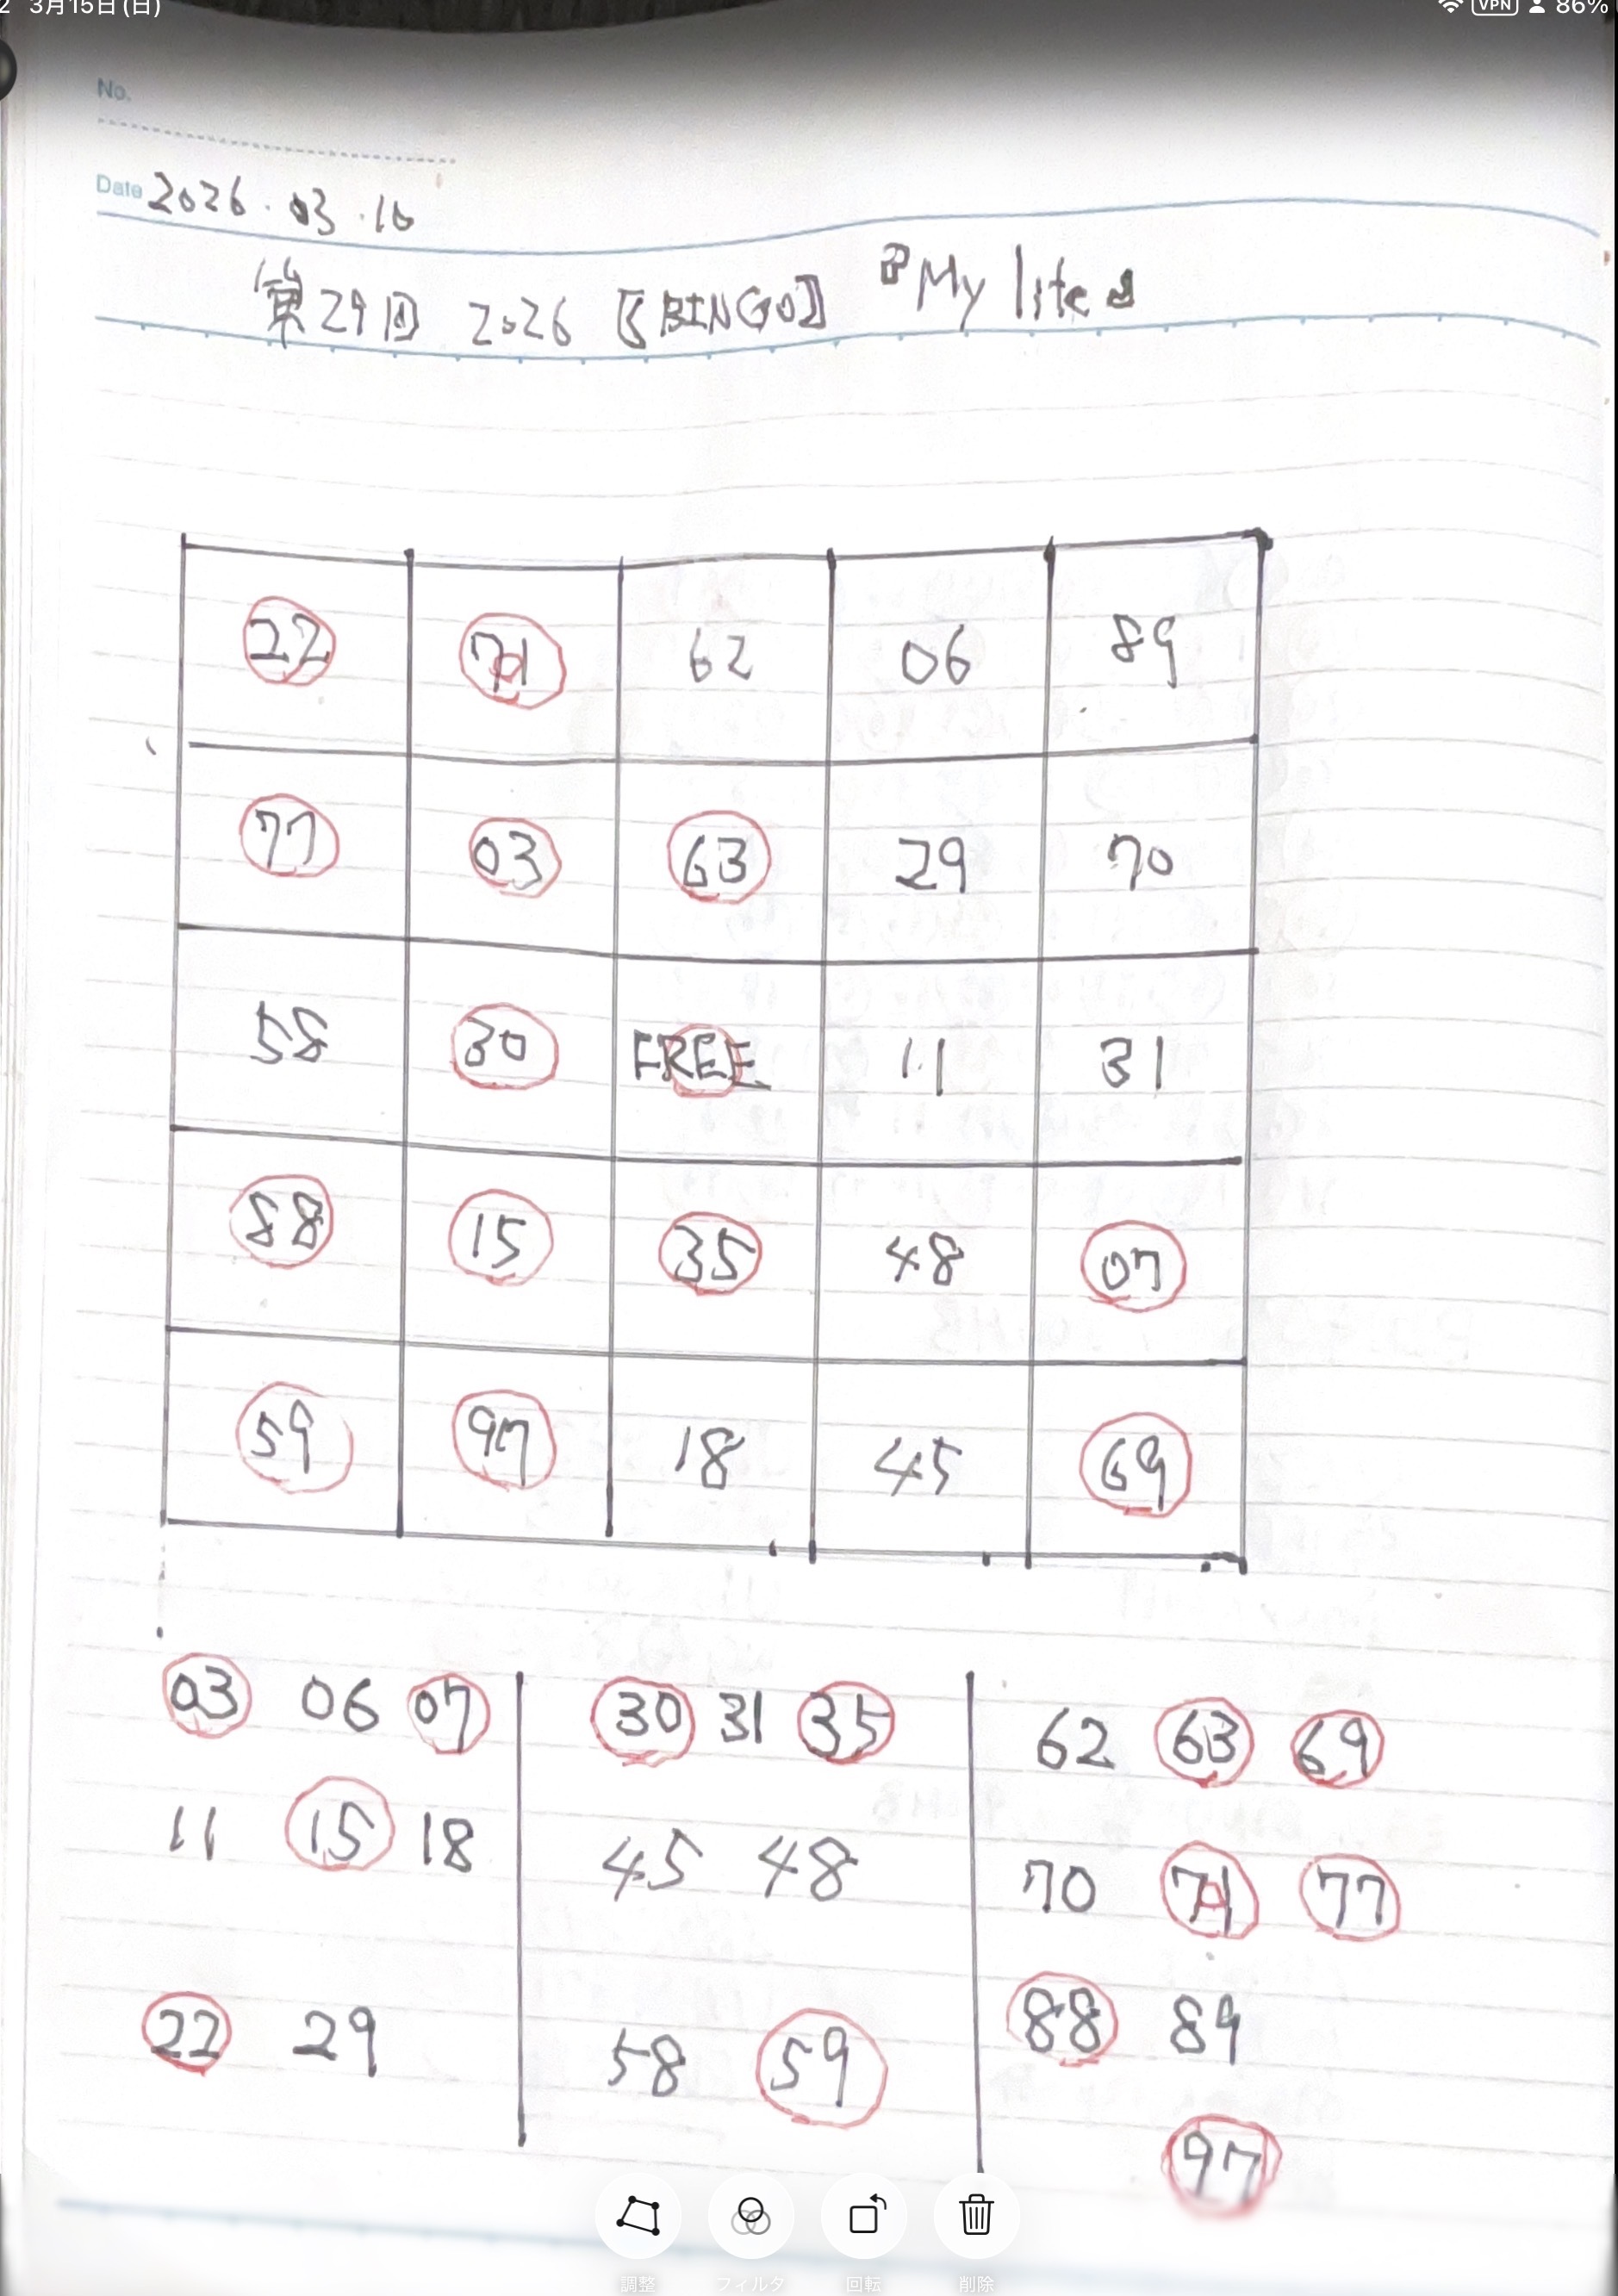 2 3月15日(日) VPN 86%
No.
Date 2026.03.10
第29回 2026 【BINGO】 『My life』
22 71 62 06 89
77 03 63 29 70
58 30 FREE 11 31
88 15 35 48 07
59 97 18 45 69
03 06 07 30 31 35 62 63 69
11 15 18 45 48 70 71 77
22 29 58 59 88 89
97
調整 フィルタ 回転 削除